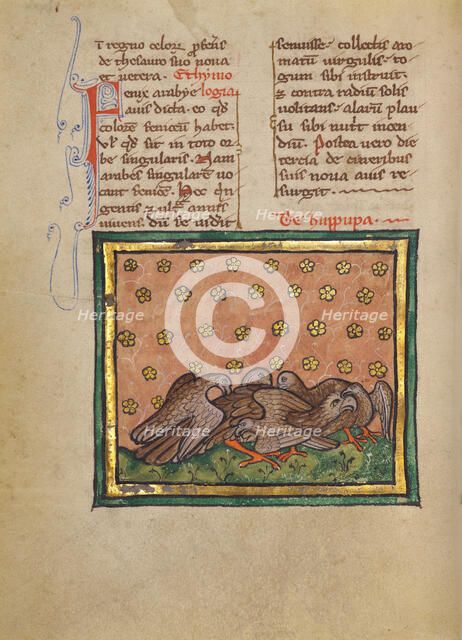 in regno celorum profert
de thesauro suo nova
et vetera. Ethymo
Fenix arabye logia
avis dicta. eo quod
colorem feniceum habet.
vel quod sit in toto or
be singularis. Nam
arabes singularem vo
cant fenicem. Hec quin
gentis et ultra annis
vivens. dum se viderit
senuisse. collectis aro
matum virgulis. ro
gum sibi instruit.
et contra radium solis
volitans. alarum plau
su sibi nutrit incen
dium. Postea vero die
tercia de cineribus
suis nova avis re
surgit.
De huppupa.
Heritage
Heritage
Heritage
Heritage
Heritage
Heritage
©